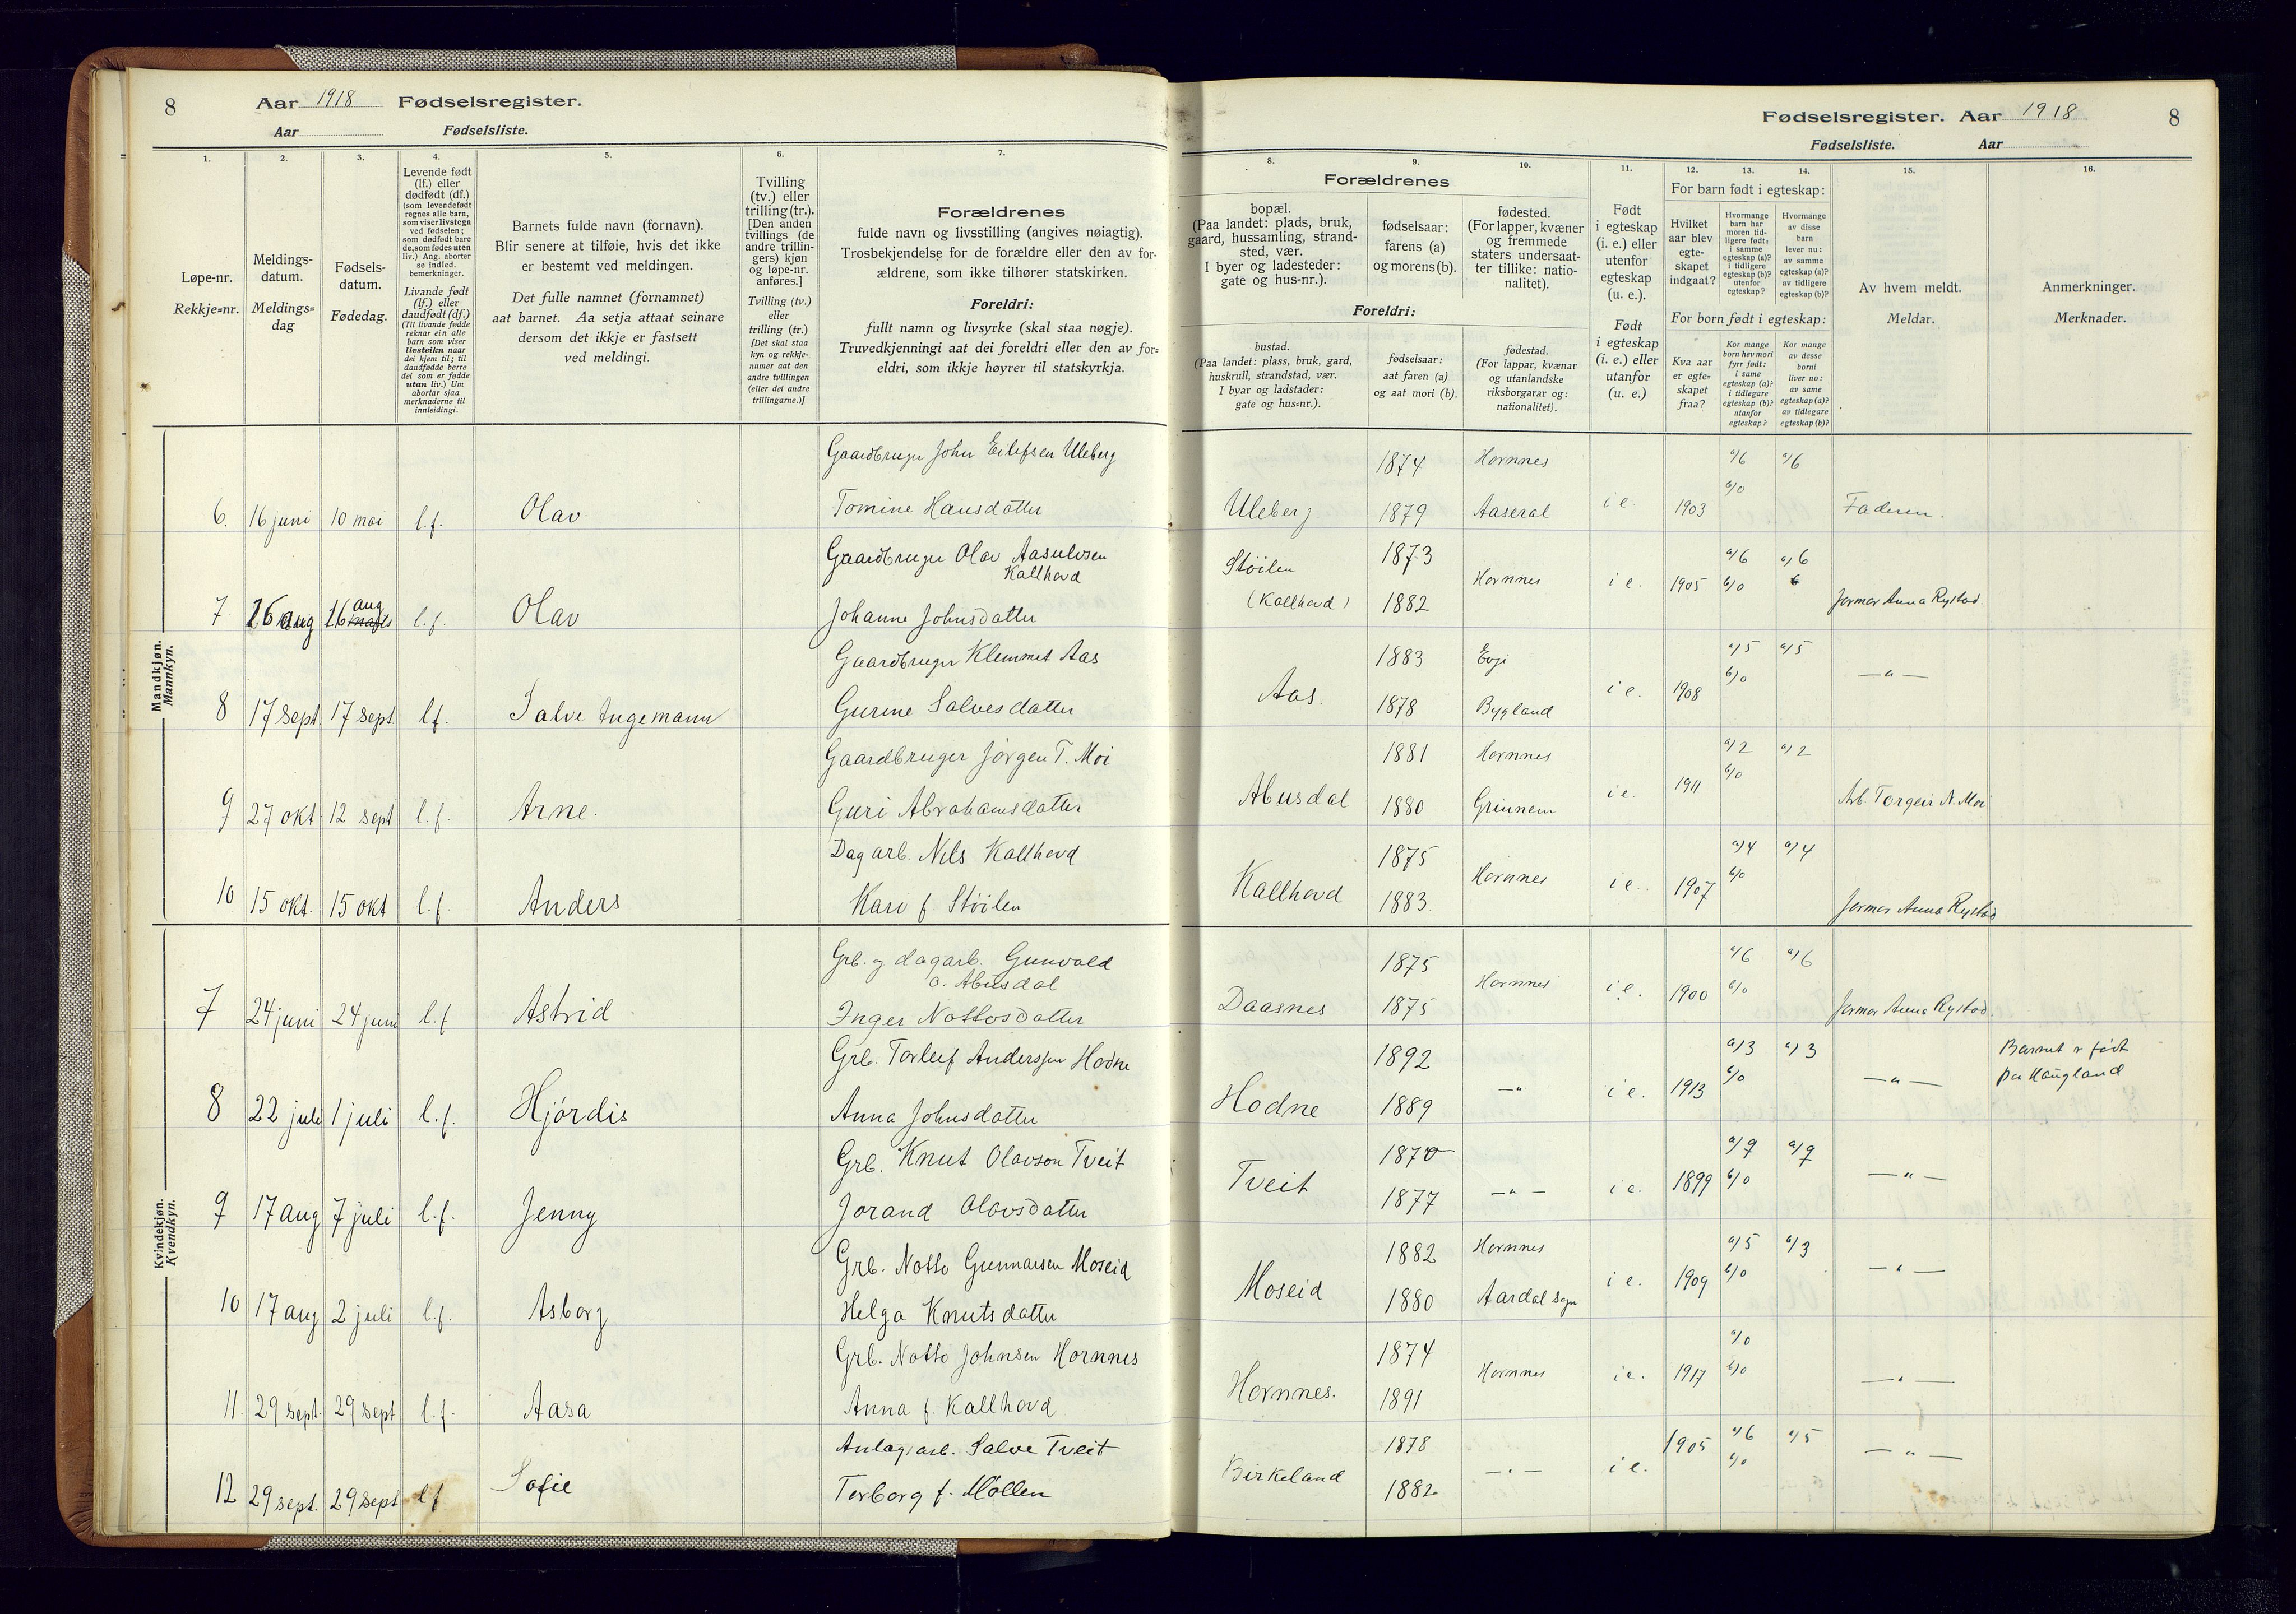 8 Aar 1918 Fødselsregister.
Aar Fødselsliste.
1. 2. 3. 4. 5. 6. 7.
Løpe-nr.
Rekkje=nr.
Meldings-
datum.
Meldings=
dag
Fødsels-
datum.
Fødedag.
Levende født
(lf.) eller
dødfødt (df.)
(som levendefødt
regnes alle barn,
som viser livstegn
ved fødselen;
som dødfødt bare
de, som fødes uten
liv.) Ang. aborter
se indled.
bemerkninger.
Livande født
(lf.) eller
daudfødt (df.)
(Til livande fødde
reknar ein alle
barn som viser
livsteikn naar
dei kjem til; til
daudfødde berre
dei som er fødde
utan liv.) Um
abortar sjaa
merknaderne til
innleidingi.
Barnets fulde navn (fornavn).
Blir senere at tilføie, hvis det ikke
er bestemt ved meldingen.
Det fulle namnet (fornamnet)
aat barnet. Aa setja attaat seinare
dersom det ikkje er fastsett
ved meldingi.
Tvilling
(tv.) eller
trilling (tr.).
[Den anden
tvillings (de
andre trillin-
gers) kjøn
og løpe-nr.
anføres.]
Tvilling (tv.)
eller
trilling (tr.)
[Det skal staa
kyn og rekkje-
numer aat den
andre tvillingen
(eller dei andre
trillingarne.)]
Forældrenes
fulde navn og livsstilling (angives nøiagtig).
Trosbekjendelse for de forældre eller den av for-
ældrene, som ikke tilhører statskirken.
Foreldri:
fullt namn og livsyrke (skal staa nøgje).
Truvedkjenningi aat dei foreldri eller den av for=
eldri, som ikkje høyrer til statskyrkja.
Mandkjøn.
Mannkyn.
Gaardbruger John Eilefsen Uleberg
6. 16 juni 10 mai l.f. Olav Tomine Hansdatter
Gaardbruger Olav Aasulvsen
Kallhovd
7 16 aug 16 aug l.f. Olav Johanne Johnsdatter
Gaardbruger Klemmet Aas
8 17 sept. 17 sept. lf. Salve Ingemann Gurine Salvesdatter
Gaardbruger Jørgen T. Moi
9 27 okt 12 sept l.f. Arne. Guri Abrahamsdatter
Dagarb. Nils Kallhovd
10 15 okt. 15 okt l.f. Anders Kari f. Støilen
Kvindekjøn.
Kvendkyn.
Grb. og dagarb. Gunvald
O. Abusdal
7 24 juni 24 juni l.f Astrid Inger Nottosdatter
Grb. Torleif Anderssen Hodne
8 22 juli 1 juli l.f. Hjördis Anna Johnsdatter
Grb. Knut Olavson Tveit
9 17 aug 7 juli l.f. Jenny Jorand Olavsdatter
Grb. Notto Gunnarsen Moseid
10 17 aug 2 juli l.f. Asborg Helga Knutsdatter
Grb. Notto Johnsen Hornnes
11. 29 sept. 29 sept l.f. Aasa Anna f. Kallhovd
Anlagsarb. Salve Tveit
12 29 sept. 29 sept lf Sofie Torborg f. Møllen
Fødselsregister. Aar 1918 8
Fødselsliste. Aar
8. 9. 10. 11. 12. 13. 14. 15. 16.
Forældrenes
bopæl.
(Paa landet: plads, bruk,
gaard, hussamling, strand-
sted, vær.
I byer og ladesteder:
gate og hus-nr.).
fødselsaar:
farens (a)
og morens (b).
fødested.
(For lapper, kvæner
og fremmede
staters undersaat-
ter tillike: natio-
nalitet).
Foreldri:
bustad.
(Paa landet: plass, bruk, gard,
huskrull, strandstad, vær.
I byar og ladstader:
gate og hus=nr.).
fødselsaar:
aat faren (a)
og aat mori (b).
fødestad.
(For lappar, kvænar
og utanlandske
riksborgarar og:
nationalitet).
Født
i egteskap
(i. e.) eller
utenfor
egteskap
(u. e.).
Født
i egteskap
(i. e.) eller
utanfor
(u. e.)
For barn født i egteskap:
Hvilket
aar blev
egte-
skapet
indgaat?
Hvormange
barn har
moren tid-
ligere født:
i samme
egteskap (a)?
i tidligere
egteskap (b)?
utenfor
egteskap?
Hvormange
av disse
barn
lever nu:
av samme
egteskap (a)?
av tidligere
egteskap (b)?
For born født i egteskap:
Kva aar
er egte=
skapet
fraa?
Kor mange
born hev mori
fyrr født:
i same
egteskap (a)?
i tidlegare
egteskap (b)?
utanfor
egteskap?
Kor mange
av desse
borni
liver no:
av same
egteskap (a)?
av tidlegare
egteskap (b)?
Av hvem meldt.
Meldar.
Anmerkninger.
Merknader.
1874 Hornnes a/6 a/6
Uleberg 1879 Aaseral i e. 1903 b/0 Faderen.
Støilen 1873 a/6 a/6
(Kallhovd) 1882 Hornnes i e. 1905 b/0 6 Jormor Anna Rystad.
1883 Evje a/5 a/5
Aas. 1878 Bygland i e. 1908 b/0 — " —
1881 Hornnes a/2 a/2
Abusdal 1880 Grinnem i e. 1911 b/0 Arb. Torgeir N. Moi
1875 a/4 a/4
Kallhovd 1883. Hornnes i e. 1907 b/0 Jormor Anna Rystad
1875 a/6 a/6
Daasnes 1875 Hornnes i e. 1900 b/0 Jormor Anna Rystad.
1892 a/3 a/3 Barnet er født
Hodne 1889 — " i e. 1913 b/0 — " — paa Haugland
1870 a/9 a/9
Tveit 1877 — " — i e. 1899 b/0 — " —
1882 Hornnes a/5 a/3
Moseid 1880 Aardal Sogn i e. 1909 b/0 — " —
1874 a/0
Hornnes. 1891 Hornnes i e. 1917 b/0 — " —
1878 a/6 a/5
Birkeland 1882 — " — i e. 1905 b/0 — " —